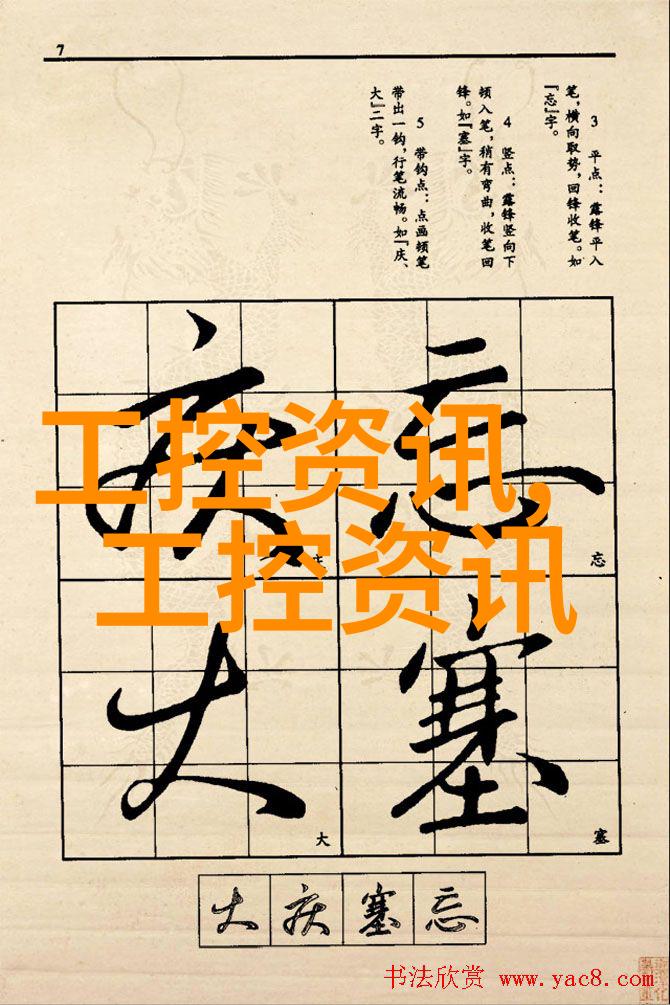 7
3 平点：露锋平入
笔，横向取势，回锋收笔。如
『忘』字。
4 竖点：露锋竖向下
顿入笔，稍有弯曲，收笔回
锋。如『塞』字。
5 带钩点：点画顿笔
带出一钩，行笔流畅。如『庆、
大』二字。
庆 忘
工控资讯,
工控资讯
忘
大 塞
大 塞
大 庆 塞 忘
书法欣赏 www.yac8.com